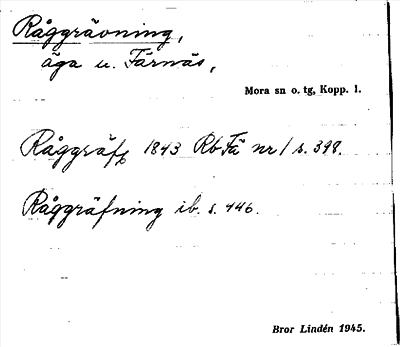 Råggrävning,
äga u. Färnäs,
Mora sn o. tg, Kopp. l.
Råggräf 1843 Rb Fä nr 1 s. 398.
Råggräfning ib. s. 446.
Bror Lindén 1945.